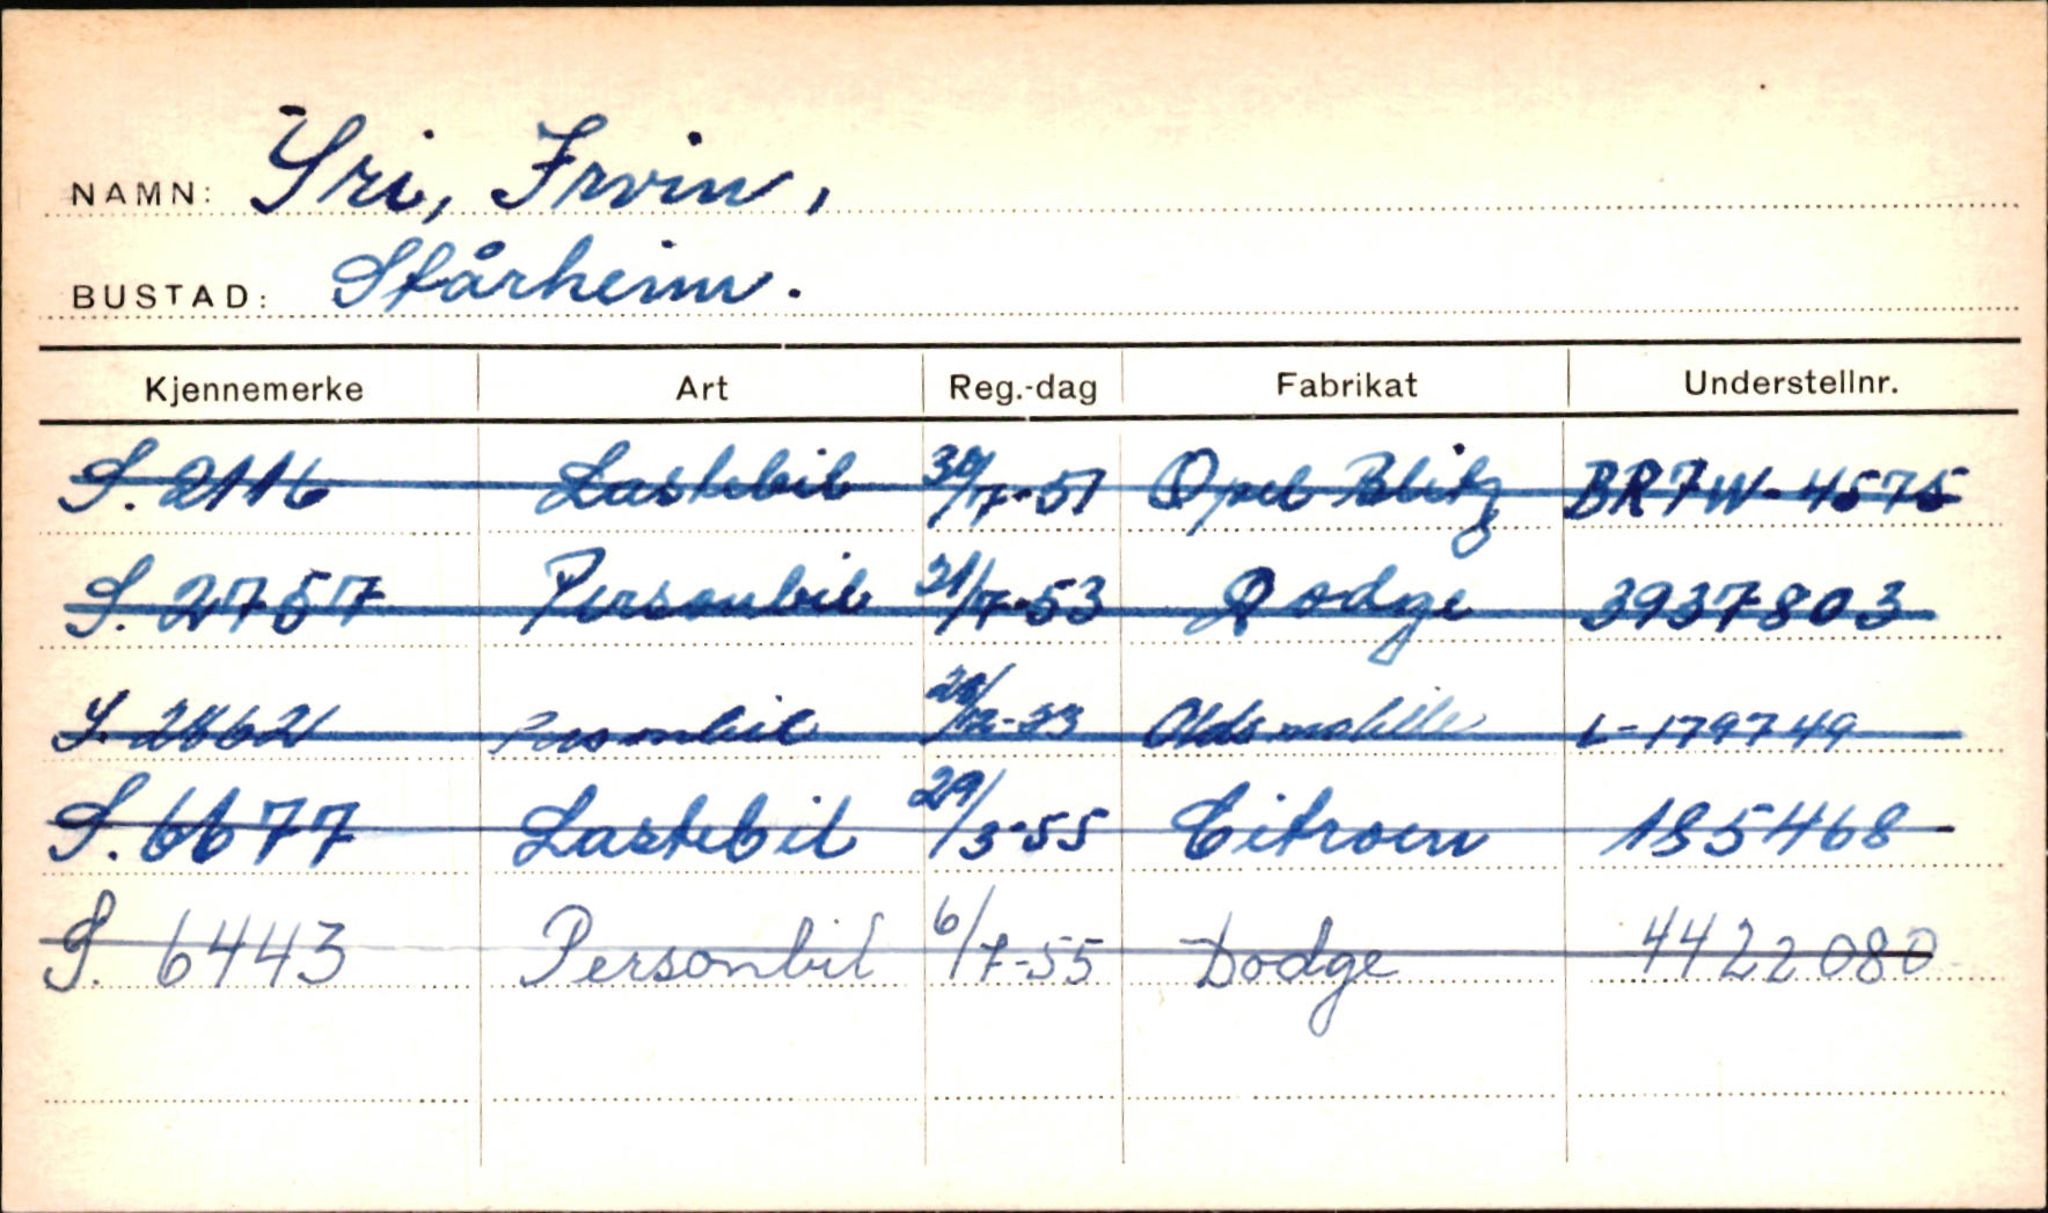 NAMN: Yri, Irvin,
BUSTAD: Stårheim.
Kjennemerke Art Reg.-dag Fabrikat Understellnr.
S. 2116 Lastebil 30/7-51 Opel Blitz BR7W-4575
S. 2757 Personbil 21/7-53 Dodge 3937803
S. Personbil Oldsmobile L-179749
S. 6677 Lastebil 29/3-55 Citroen 185468
S. 6443 Personbil 6/7-55 Dodge 4422080